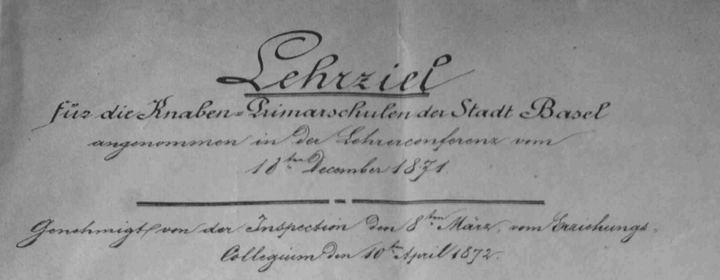 Lehrziel
für die Knaben-Primarschulen der Stadt Basel
angenommen in der Lehrerconferenz vom
18ten December 1871.
Genehmigt von der Inspection den 8ten März, vom Erziehungs-
Collegium den 10ten April 1872.